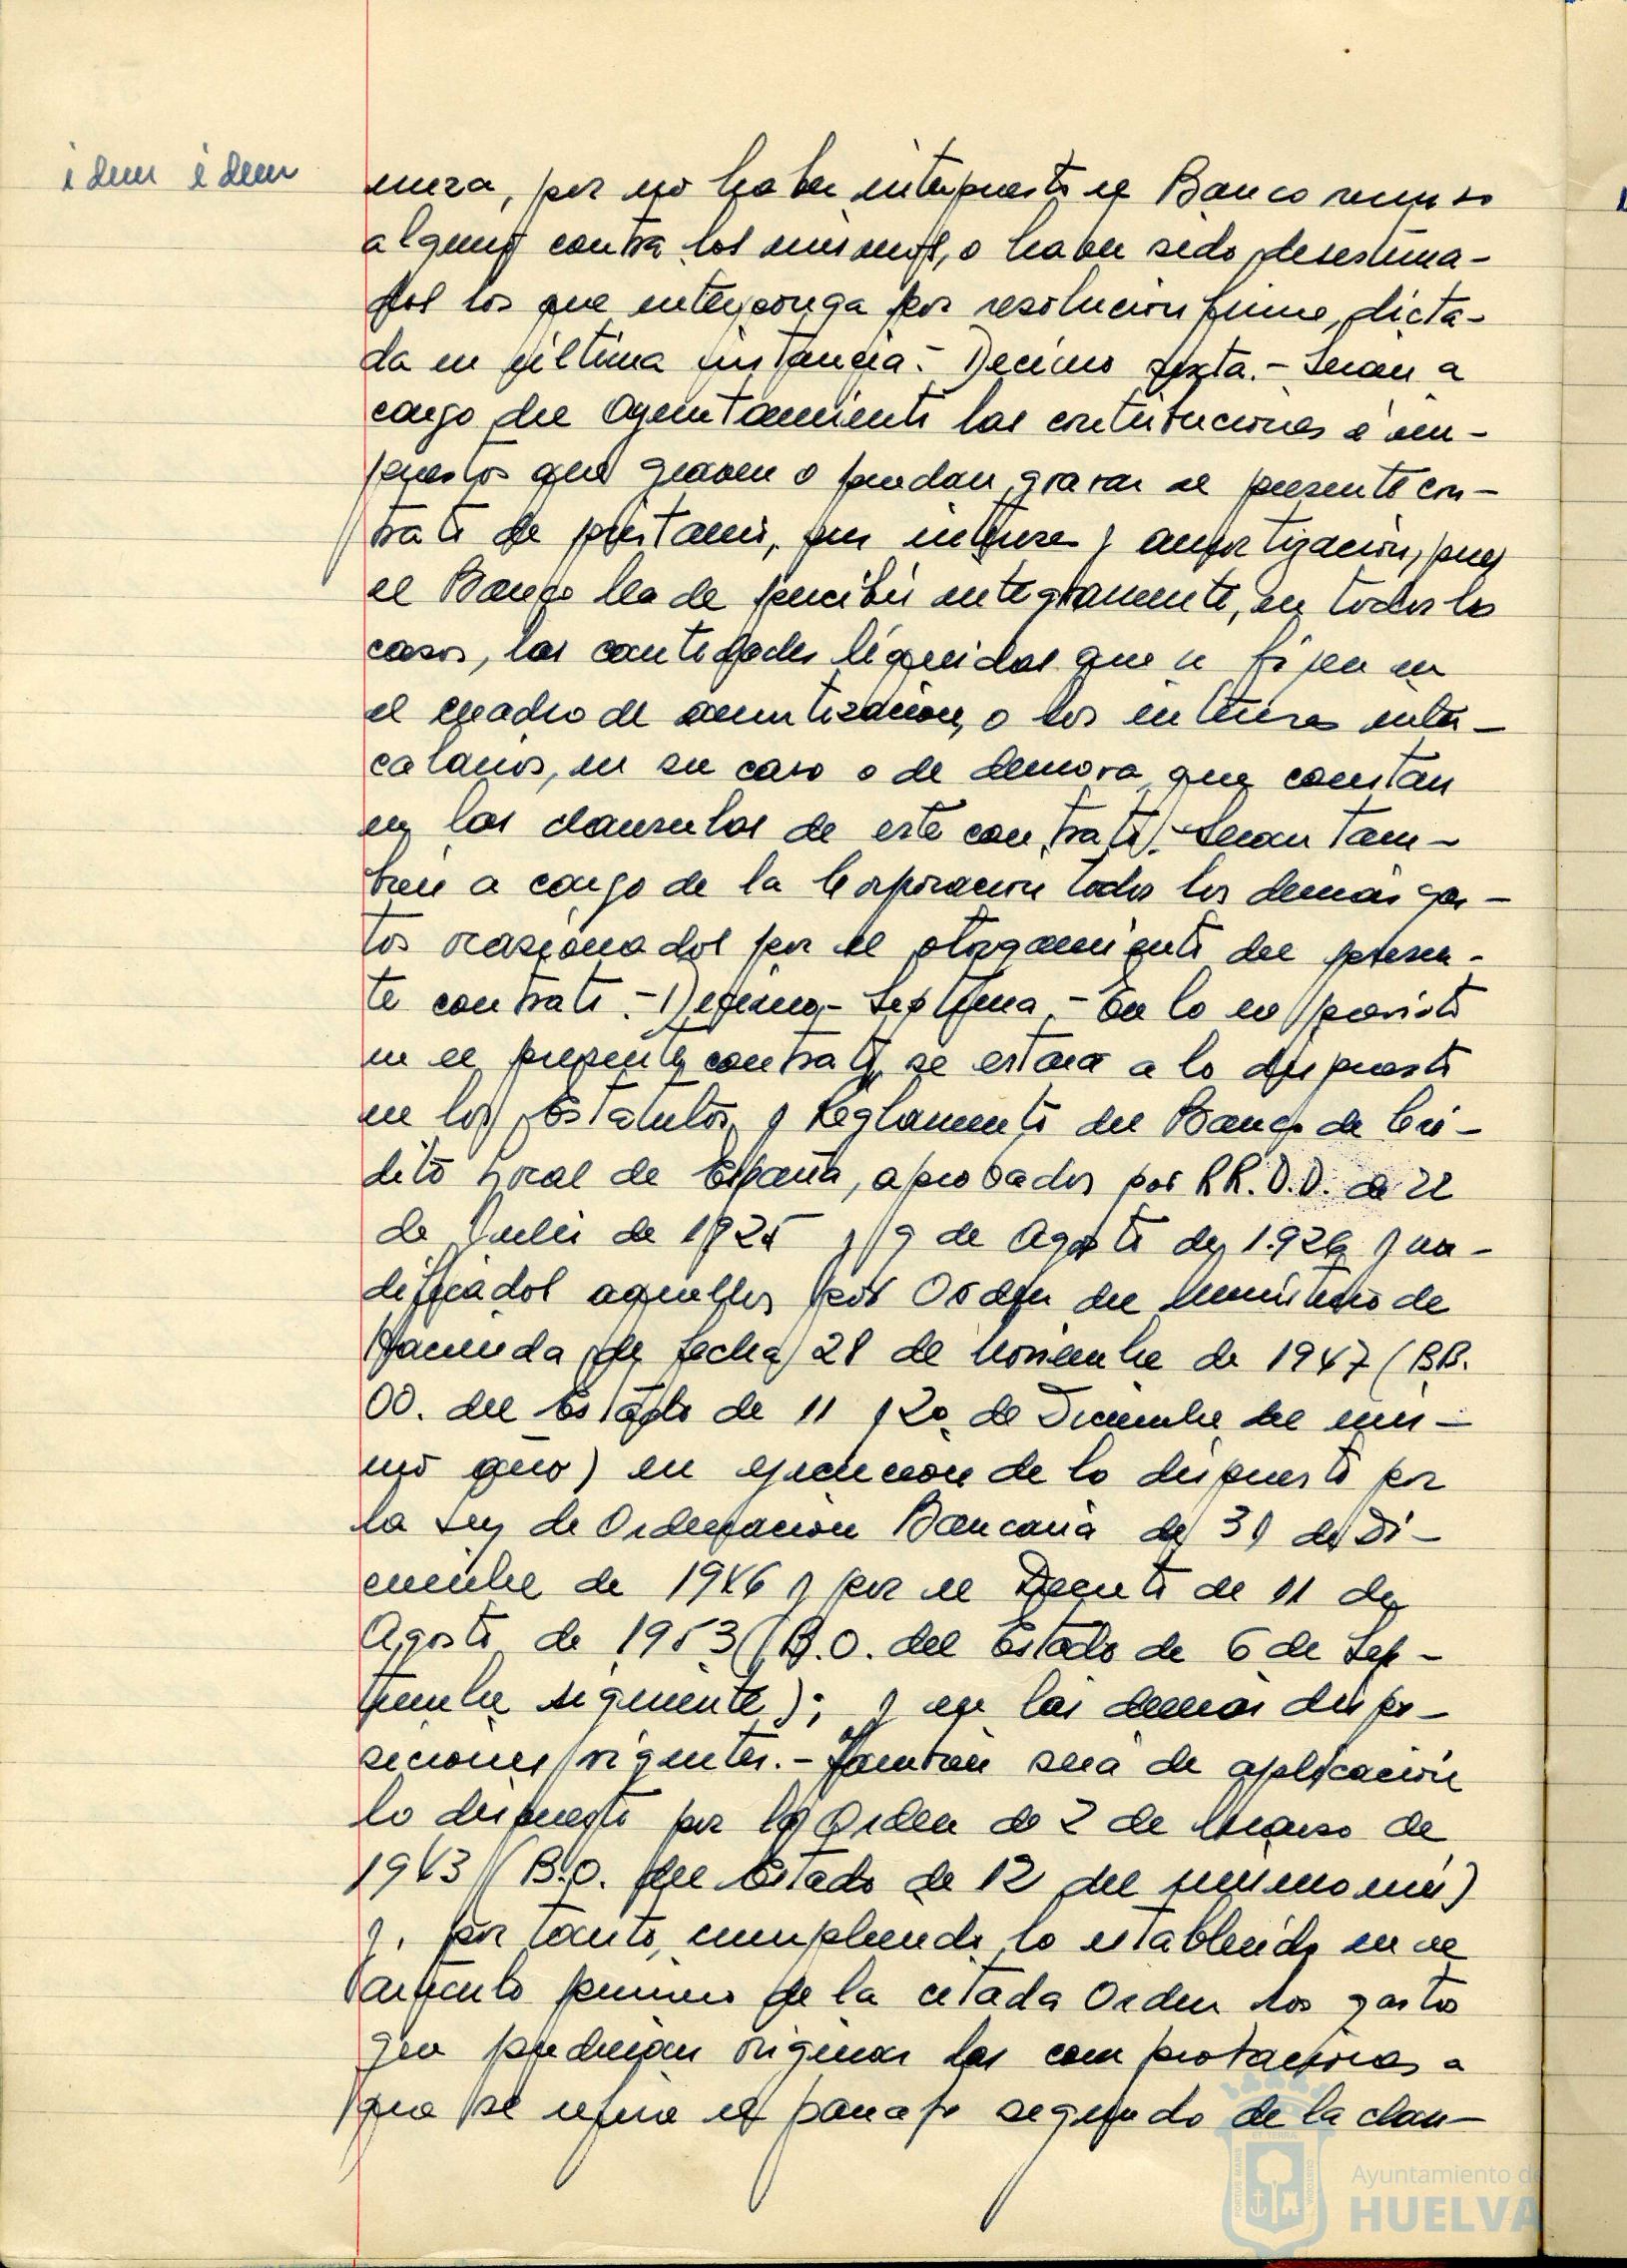 idem idem
mera, por no haber interpuesto el Banco recurso
alguno contra los mismos, o haber sido desestima-
dos los que interponga por resolución firme, dicta-
da en última instancia.- Décimo sexta.- Serán a
cargo del Ayuntamiento las contribuciones e im-
puestos que graven o puedan gravar el presente con-
trato de préstamo, sus intereses y amortización, pues
el Banco ha de percibir integramente, en todos los
casos, las cantidades líquidas que se fijen en
el cuadro de amortización, o los intereses inter-
calarios, en su caso o de demora, que constan
en las clausulas de este contrato.- Seran tam-
bién a cargo de la Corporacion todos los demás gas-
tos ocasionados por el otorgamiento del presen-
te contrato.- Décimo-Septima.- En lo no previsto
en el presente contrato, se estará a lo dispuesto
en los Estatutos y Reglamento del Banco de Cré-
dito Local de España, aprobados por RR.D.D. de 22
de Julio de 1925 y 9 de Agosto de 1.926 y mo-
dificados aquellos por Orden del Ministerio de
Hacienda de fecha 28 de Noviembre de 1947 (BB.
OO. del Estado de 11 y 20 de Diciembre del mis-
mo año) en ejecución de lo dispuesto por
la Ley de Ordenación Bancaria de 31 de Di-
ciembre de 1946 y por el Decreto de 11 de
Agosto de 1953 (B.O. del Estado de 6 de Sep-
tiembre siguiente); y en las demás dispo-
siciones vigentes.- También será de aplicación
lo dispuesto por la Orden de 2 de Marzo de
1943 (B.O. del Estado de 12 del mismo mes)
y, por tanto, cumpliendo lo establecido en el
artículo primero de la citada Orden los gastos
que pudieran originar las comprobaciones a
que se refiere el parrafo segundo de la clau-
Ayuntamiento de
HUELVA